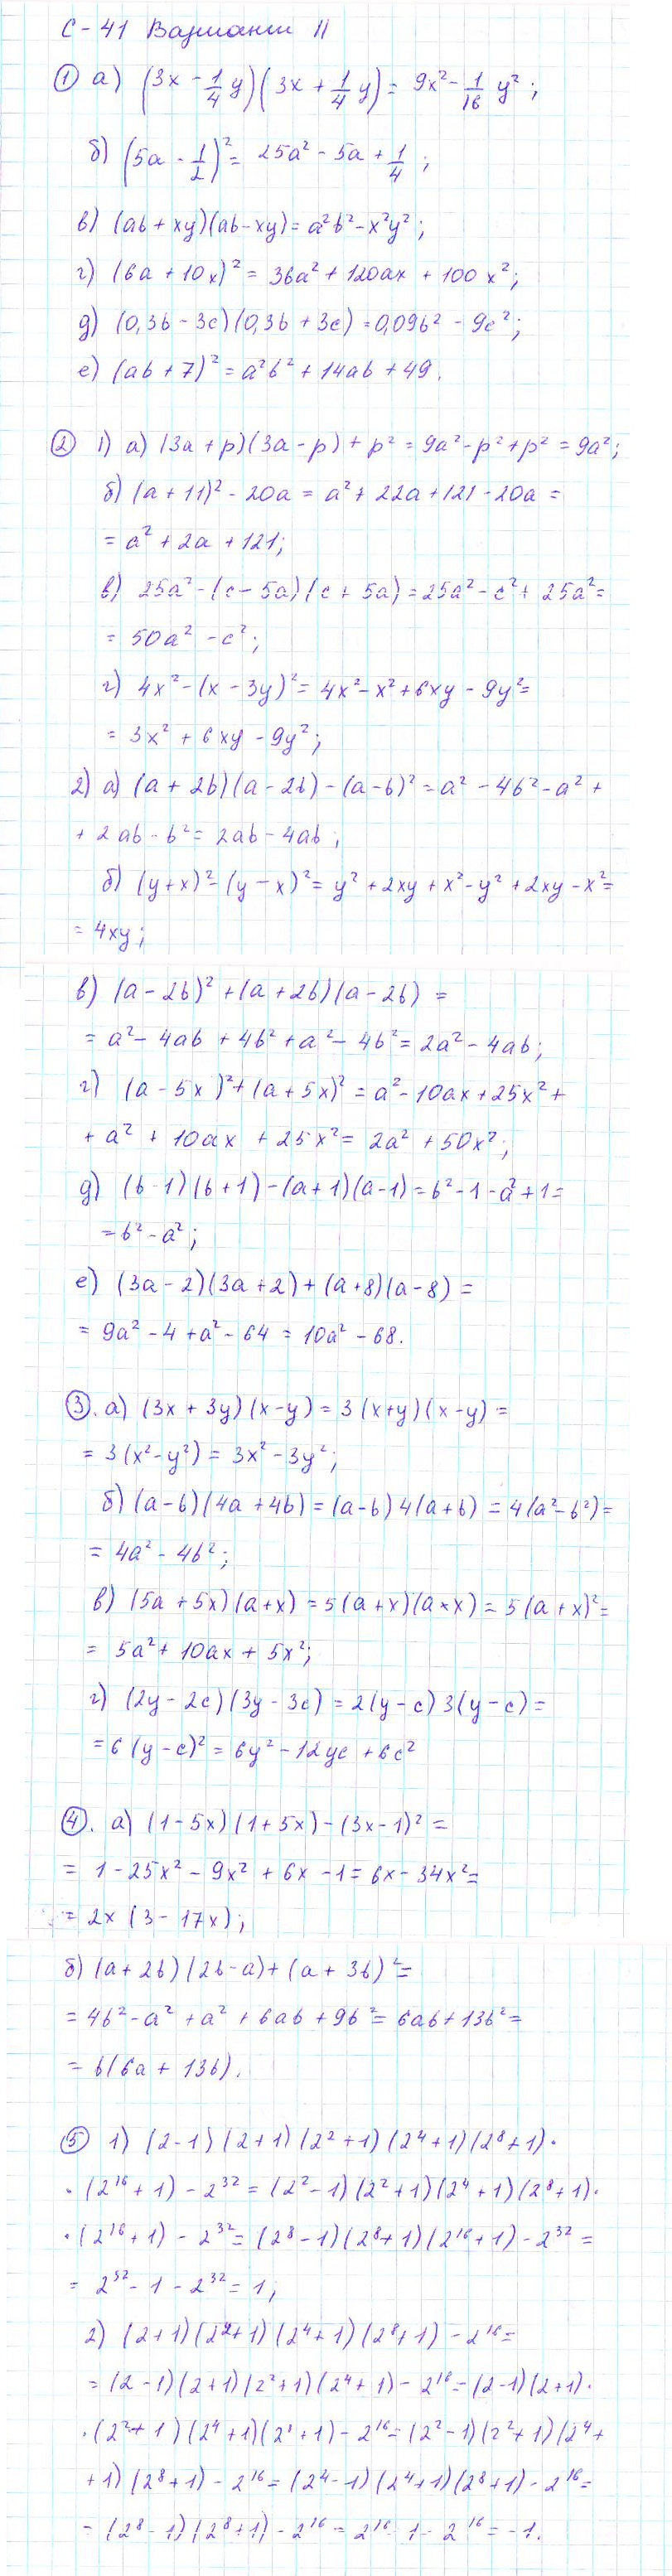 С-41 Вариант II
① а) (3x - 1/4 y)(3x + 1/4 y) = 9x² - 1/16 y²;
б) (5a - 1/2)² = 25a² - 5a + 1/4;
в) (ab + xy)(ab - xy) = a²b² - x²y²;
г) (6a + 10x)² = 36a² + 120ax + 100x²;
д) (0,3b - 3c)(0,3b + 3c) = 0,09b² - 9c²;
е) (ab + 7)² = a²b² + 14ab + 49.
② 1) а) (3a + p)(3a - p) + p² = 9a² - p² + p² = 9a²;
б) (a + 11)² - 20a = a² + 22a + 121 - 20a =
= a² + 2a + 121;
в) 25a² - (c - 5a)(c + 5a) = 25a² - c² + 25a² =
= 50a² - c²;
г) 4x² - (x - 3y)² = 4x² - x² + 6xy - 9y² =
= 3x² + 6xy - 9y²;
2) а) (a + 2b)(a - 2b) - (a - b)² = a² - 4b² - a² +
+ 2ab - b² = 2ab - 4ab;
б) (y + x)² - (y - x)² = y² + 2xy + x² - y² + 2xy - x² =
= 4xy;
в) (a - 2b)² + (a + 2b)(a - 2b) =
= a² - 4ab + 4b² + a² - 4b² = 2a² - 4ab;
г) (a - 5x)² + (a + 5x)² = a² - 10ax + 25x² +
+ a² + 10ax + 25x² = 2a² + 50x²;
д) (b - 1)(b + 1) - (a + 1)(a - 1) = b² - 1 - a² + 1 =
= b² - a²;
е) (3a - 2)(3a + 2) + (a + 8)(a - 8) =
= 9a² - 4 + a² - 64 = 10a² - 68.
③. а) (3x + 3y)(x - y) = 3(x + y)(x - y) =
= 3(x² - y²) = 3x² - 3y²;
б) (a - b)(4a + 4b) = (a - b)4(a + b) = 4(a² - b²) =
= 4a² - 4b²;
в) (5a + 5x)(a + x) = 5(a + x)(a + x) = 5(a + x)² =
= 5a² + 10ax + 5x²;
г) (2y - 2c)(3y - 3c) = 2(y - c)3(y - c) =
= 6(y - c)² = 6y² - 12yc + 6c²
④. а) (1 - 5x)(1 + 5x) - (3x - 1)² =
= 1 - 25x² - 9x² + 6x - 1 = 6x - 34x² =
= 2x(3 - 17x);
б) (a + 2b)(2b - a) + (a + 3b)² =
= 4b² - a² + a² + 6ab + 9b² = 6ab + 13b² =
= b(6a + 13b).
⑤ 1) (2 - 1)(2 + 1)(2² + 1)(2⁴ + 1)(2⁸ + 1)·
·(2¹⁶ + 1) - 2³² = (2² - 1)(2² + 1)(2⁴ + 1)(2⁸ + 1)·
·(2¹⁶ + 1) - 2³² = (2⁸ - 1)(2⁸ + 1)(2¹⁶ + 1) - 2³² =
= 2³² - 1 - 2³² = 1;
2) (2 + 1)(2² + 1)(2⁴ + 1)(2⁸ + 1) - 2¹⁶ =
= (2 - 1)(2 + 1)(2² + 1)(2⁴ + 1) - 2¹⁶ = (2 - 1)(2 + 1)·
·(2² + 1)(2⁴ + 1)(2⁸ + 1) - 2¹⁶ = (2² - 1)(2² + 1)(2⁴ +
+ 1)(2⁸ + 1) - 2¹⁶ = (2⁴ - 1)(2⁴ + 1)(2⁸ + 1) - 2¹⁶ =
= (2⁸ - 1)(2⁸ + 1) - 2¹⁶ = 2¹⁶ - 1 - 2¹⁶ = -1.